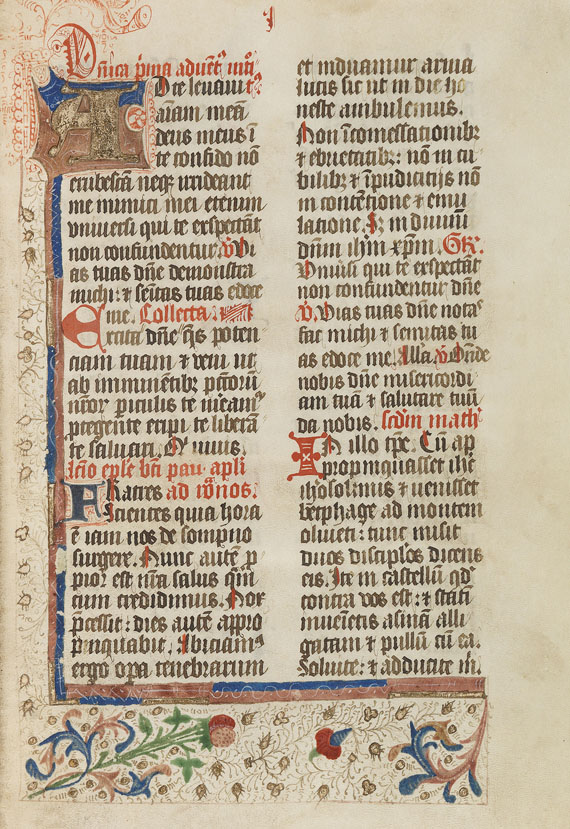 I
Dnica p̄ma aduēt⁹ īti
Ad te leuaui t⁹
aīam meā
deus meus ī
te confido nō
erubescā neqꝫ irrideant
me inimici mei etenim
vniuersi qui te exspectāt
non confundentur. v̄ Vi
as tuas dn̄e demonstra
michi: ⁊ sēitas tuas edoce
me. Collecta.
Excita dn̄e q̄s poten
ciam tuam ⁊ veni ut
ab imminētibꝫ pctorū
nr̄or piculis te meam⁹
ptegente eripi te liberā
te saluari. Qi viuis.
lcio eple bti pau apli
Fratres ad roōnos.
Scientes quia hora
ē iam nos de sompno
surgere. Nunc autē p
pior est nr̄a salus qm̄
cum credidimus. Nox
pcessit: dies autē appro
pinquabit. Abiciam⁹
ergo opa tenebrarum
et induamur arma
lucis sic ut in die ho
neste ambulemus.
Non ī comessationibꝫ
⁊ ebrietatibꝫ: nō in cu
bilibꝫ ⁊ īpudicitijs nō
in contētione ⁊ emu
latione. Sꝫ induimī
dnm ihm xpm. Gr̄.
Vniūsi qui te exspectāt
non confundentur dn̄e
v̄. Vias tuas dn̄e notas
fac michi ⁊ semitas tu
as edoce me. Alla v̄ On̄de
nobis dn̄e misericordi
am tuā ⁊ salutare tuū
da nobis. scdm math
In illo tpe. Cū ap
propinquasset ihc
ihosolimis ⁊ venisset
bethphage ad montem
oliueti: tunc misit
duos disciplos dicens
eis. Ite in castellū qd̄
contra vos est: ⁊ statī
inueietis asinā alli
gatam ⁊ pullū cū ea.
Soluite: ⁊ adducite m̄.